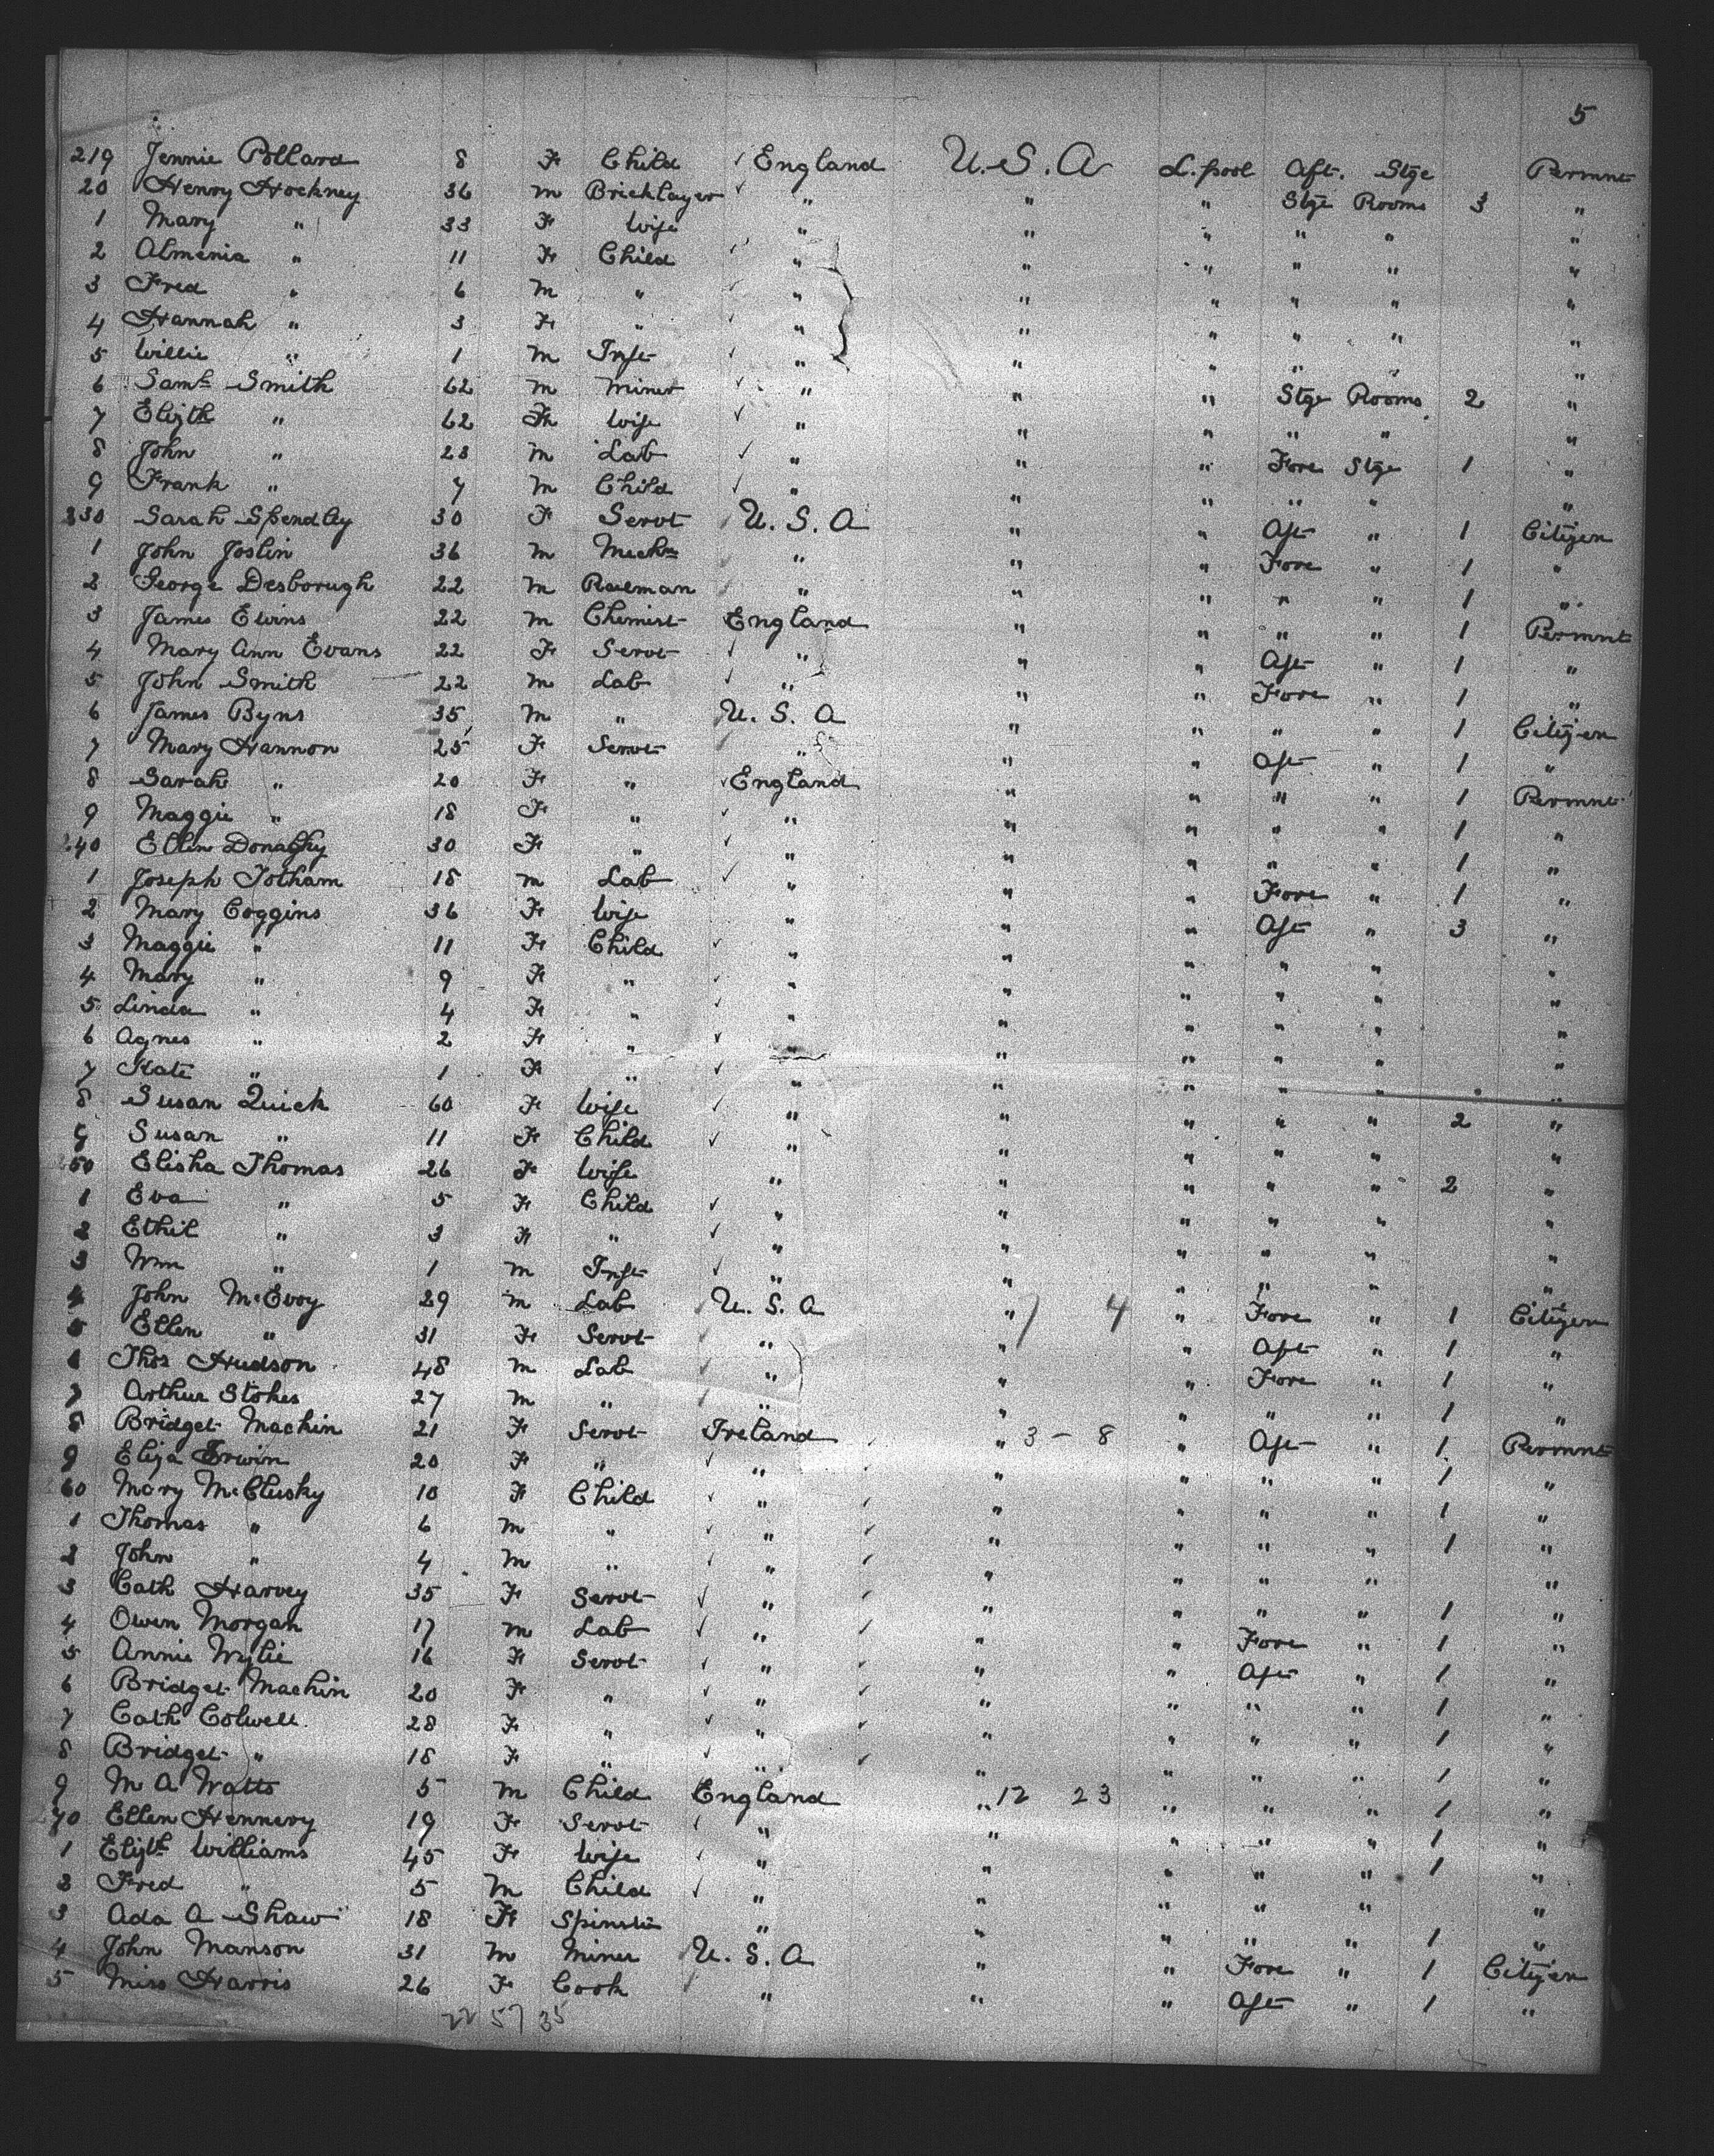 5
219 Jennie Pollard 8 F Child ✓ England U.S.A L.pool Aft. Stge Permnt
20 Henry Hockney 36 m Bricklayer ✓ " " " Stge Rooms 3 "
1 Mary " 33 F Wife " " " " " "
2 Almenia " 11 F Child ✓ " " " " " "
3 Fred " 6 m " ✓ " " " " " "
4 Hannah " 3 F " ✓ " " " " " "
5 Willie " 1 m Inft ✓ " " " " " "
6 Saml Smith 62 m Miner ✓ " " " Stge Rooms 2 "
7 Elizth " 62 F Wife ✓ " " " " " "
8 John " 23 m Lab ✓ " " " Fore Stge 1 "
9 Frank " 7 m Child ✓ " " " " " "
230 Sarah Spendley 30 F Servt U.S.A " " Aft " 1 Citizen
1 John Joslin 36 m Mechn " " " Fore " 1 "
2 George Desborough 22 m " " " " " 1 "
3 James Evins 22 m Chemist England " " " " 1 Permnt
4 Mary Ann Evans 22 F Servt ✓ " " " Aft " 1 "
5 John Smith 22 m Lab ✓ " " " Fore " 1 "
6 James Byns 35 m " U.S.A " " " " 1 Citizen
7 Mary Hannon 25 F Servt " " " Aft " 1 "
8 Sarah " 20 F " ✓ England " " " " 1 Permnt
9 Maggie " 18 F " ✓ " " " " " 1 "
240 Ellen Donaghy 30 F " ✓ " " " " " 1 "
1 Joseph Totham 18 m Lab ✓ " " " Fore " 1 "
2 Mary Coggins 36 F Wife " " " Aft " 3 "
3 Maggie " 11 F Child ✓ " " " " " "
4 Mary " 9 F " ✓ " " " " " "
5 Linda " 4 F " ✓ " " " " " "
6 Agnes " 2 F " ✓ " " " " " "
7 Kate " 1 F " ✓ " " " " " "
8 Susan Quick 60 F Wife ✓ " " " " " 2 "
9 Susan " 11 F Child ✓ " " " " " "
250 Elisha Thomas 26 F Wife " " " " " 2 "
1 Eva " 5 F Child ✓ " " " " " "
2 Ethil " 3 F " " " " " " "
3 Wm " 1 m Inft ✓ " " " " " "
4 John McEvoy 29 m Lab U.S.A " 7 4 " Fore " 1 Citizen
5 Ellen " 31 F Servt " " " Aft " 1 "
6 Thos Hudson 48 m Lab " " " Fore " 1 "
7 Arthur Stokes 27 m " " " " " " 1 "
8 Bridget Machin 21 F Servt Ireland " 3 - 8 " Aft " 1 Permnt
9 Eliza Erwin 20 F " ✓ " " " " " 1 "
60 Mary McClusky 10 F Child ✓ " ✓ " " " " 1 "
1 Thomas " 6 m " ✓ " ✓ " " " " 1 "
2 John " 4 m " ✓ " ✓ " " " " "
3 Cath Harvey 35 F Servt ✓ " ✓ " " " " 1 "
4 Owen Morgan 17 m Lab ✓ " ✓ " " Fore " 1 "
5 Annie Wylie 16 F Servt ✓ " ✓ " " Aft " 1 "
6 Bridget Machin 20 F " ✓ " ✓ " " " " 1 "
7 Cath Colwell 28 F " ✓ " ✓ " " " " 1 "
8 Bridget " 18 F " ✓ " ✓ " " " " 1 "
9 M A Watts 5 m Child England " 12 23 " " " 1 "
270 Ellen Hennery 19 F Servt ✓ " " " " " 1 "
1 Elizth Williams 45 F Wife ✓ " " " " " 1 "
2 Fred " 5 m Child ✓ " " " " " "
3 Ada A Shaw 18 F Spinster " " " " " 1 "
4 John Manson 31 m Miner U.S.A " " Fore " 1 Citizen
5 Miss Harris 26 F Cook " " " Aft " 1 "
22 57 35